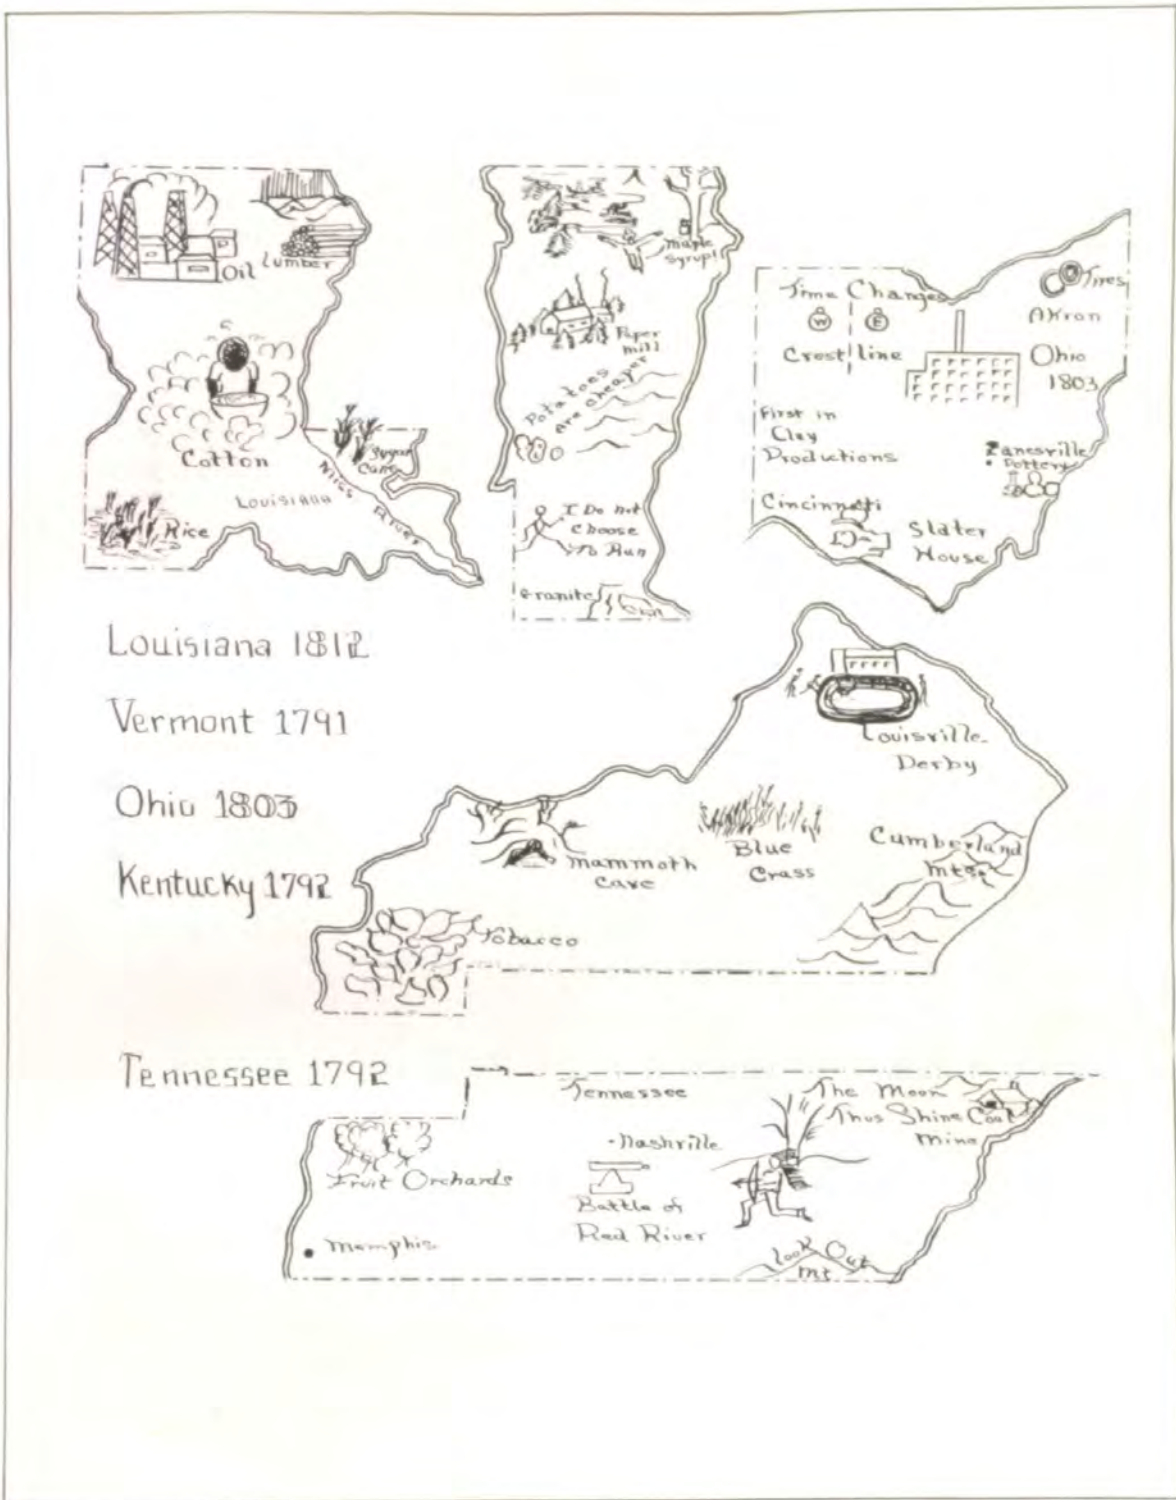 Oil
Lumber
Cotton
Sugar
Cane
Miss
River
Louisiana
Rice
Maple
Syrup!
Paper
mill
Potatoes
Are Cheaper
I Do Not
Choose
To Run
Granite
Time Changes
W
E
Crest line
Tires
Akron
Ohio
1803
First in
Clay
Productions
Zanesville
Pottery
Cincinnati
Slater
House
Louisiana 1812
Vermont 1791
Ohio 1803
Kentucky 1792
Louisville
Derby
Mammoth
Cave
Blue
Grass
Cumberland
Mts.
Tobacco
Tennessee 1792
Tennessee
The Moon
Thus Shine Coal
Mine
Nashville
Fruit Orchards
Battle of
Red River
Memphis
Look Out
Mt.